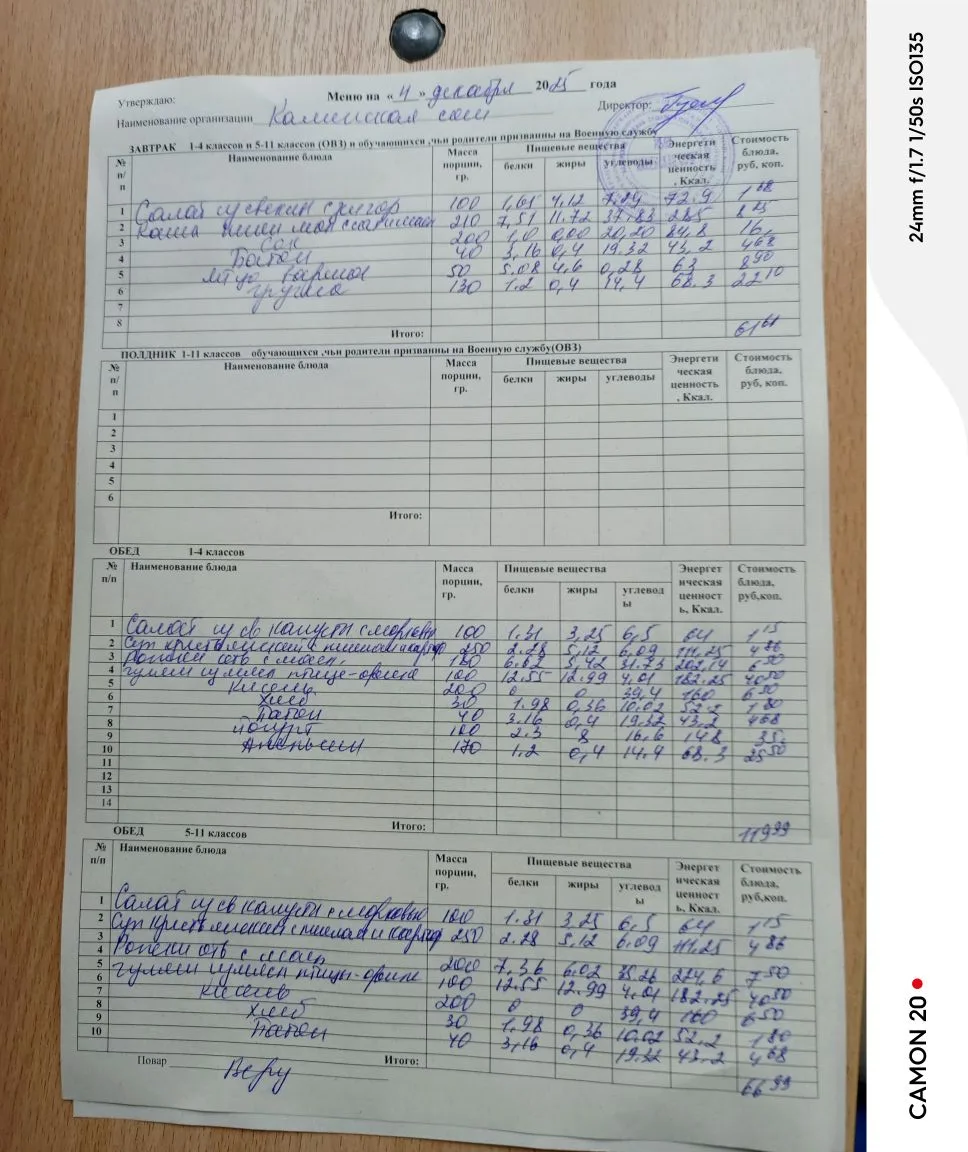 Утверждаю:
Меню на « 4 » декабря 2025 года
Наименование организации Каменская сош Директор:
ЗАВТРАК 1-4 классов и 5-11 классов (ОВЗ) и обучающихся ,чьи родители призванны на Военную службу
№ п/п Наименование блюда Масса порции, гр. Пищевые вещества белки жиры углеводы Энергетическая ценность, Ккал. Стоимость блюда, руб, коп.
1 Салат из свеклы с 100 1,61 4,12 7.29 72.9 1 68
2 Каша пшен мол 210 7,51 11.72 37.83 285 8 25
3 Сок 200 1,0 0,00 20,20 84,8 16,
4 Батон 40 3,16 0,4 19.32 43,2 4 68
5 яйцо варёное 50 5.08 4.6 0,28 63 8 90
6 груша 130 1.2 0,4 14,4 68.3 22 10
7
8
Итого: 61 61
ПОЛДНИК 1-11 классов обучающихся ,чьи родители призванны на Военную службу(ОВЗ)
№ п/п Наименование блюда Масса порции, гр. Пищевые вещества белки жиры углеводы Энергетическая ценность, Ккал. Стоимость блюда, руб, коп.
1
2
3
4
5
6
Итого:
ОБЕД 1-4 классов
№ п/п Наименование блюда Масса порции, гр. Пищевые вещества белки жиры углеводы Энергетическая ценность, Ккал. Стоимость блюда, руб,коп.
1 Салат из св капусты с морковью 100 1.31 3,25 6,5 64 1 15
2 Суп крестьянский с пшеном и картоф 250 2.28 5,12 6,09 111,25 4 86
3 отв с масл, 180 6.62 5,42 31.73 202,14 6 50
4 гуляш из мяса птице-ореше 100 12.55 12.99 4,01 182.25 40 50
5 Кисель 200 0 0 39,4 160 6 50
6 Хлеб 30 1.98 0,36 10.02 52.2 1 80
7 Батон 40 3.16 0,4 19,32 43,2 4 68
8 Йогурт 100 2.3 8 16,6 148 35,
9 Апельсин 170 1,2 0,4 14.4 68.3 25 50
10
11
12
13
14
Итого: 119 99
ОБЕД 5-11 классов
№ п/п Наименование блюда Масса порции, гр. Пищевые вещества белки жиры углеводы Энергетическая ценность, Ккал. Стоимость блюда, руб,коп.
1 Салат из св капусты с морковью 100 1.31 3,25 6,5 64 1 15
2 Суп крестьянский с пшеном и картоф 250 2.28 5,12 6,09 111,25 4 86
3
4 отв с масл 200 7,36 6,02 35.26 224,6 7 50
5 гуляш из мяса птицы 100 12.55 12.99 4,01 182.25 40 50
6 кисель 200 0 0 39,4 160 6 50
7 хлеб 30 1,98 0,36 10.02 52,2 1 80
8 Батон 40 3,16 0,4 19.32 43,2 4 68
9
10
Повар Итого: 66 99
CAMON 20
24mm f/1.7 1/50s ISO135